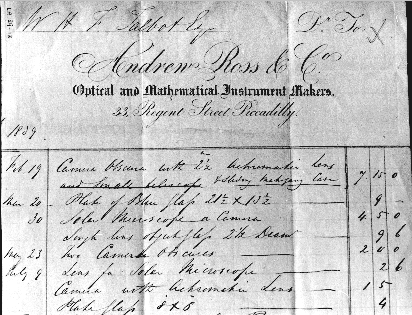 W H F Talbot Esq Dr To
Andrew Ross & Co
Optical and Mathematical Instrument Makers.
33, Regent Street Piccadilly.
1839
Feb 19 Camera Obscura with 2½ Achromatic Lens
& Sliding Mahogany Case 7 15 0
Mar 20 Plate of Blue glass 21½ x 13½ 9 -
30 Solar Microscope a Camera 4 5 0
lens object glass 2¼ 9 6
23 two Camera Obscuras 2 0 0
July 9 Lens for Solar Microscope 2 6
Camera with Achromatic Lens 1 5
Plate glass 8 x 5 4